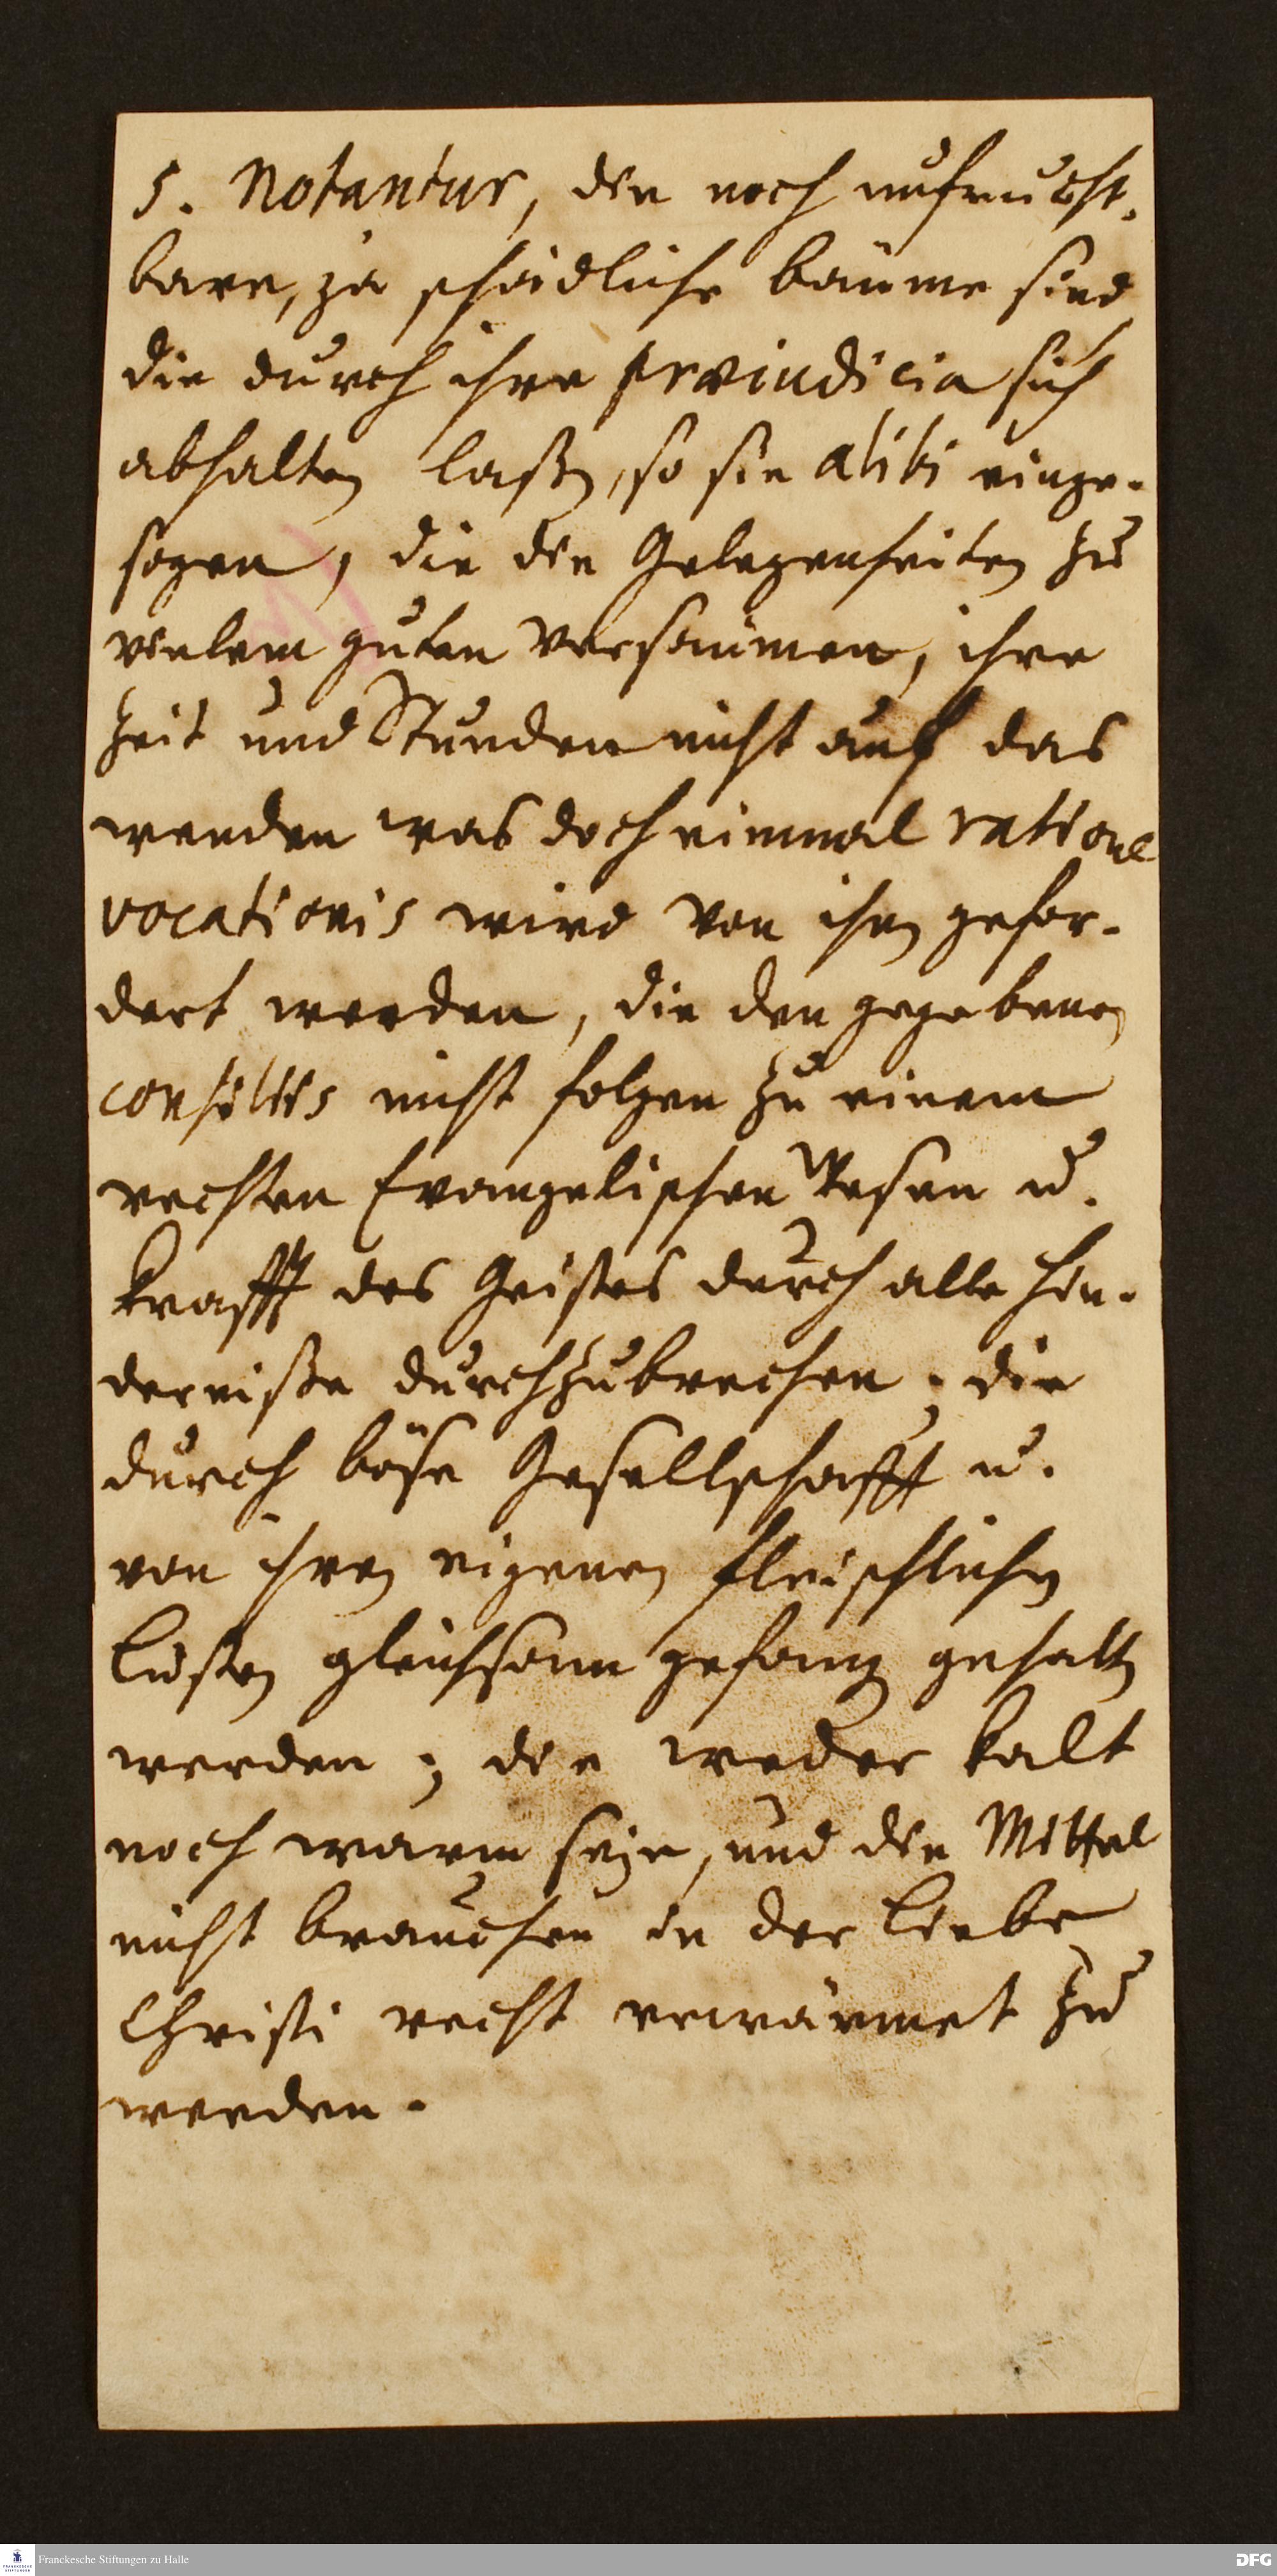 5. Notantur, die noch unfrucht-
bare, ja schädliche bäume sind
die durch ihre præiudicia sich
abhalten laßen, so sie alibi einge-
sogen, die die Gelegenheiten zu
vielem guten versäumen, ihre
Zeit und Stunden nicht auf das
wenden was doch einmal ratione
vocationis wird von ihn gefor-
dert werden, die den gegebenen
consiliis nicht folgen zu einem
rechten Evangelischen Wesen u.
Krafft des Geistes durch alle Hin-
derniße durchzubrechen; die
durch böse Gesellschafft u.
von ihren eigenen fleischlichen
Lüsten gleichsam gefangen gehalten
werden; die weder kalt
noch warm seyn, und die Mittel
nicht brauchen in der Liebe
Christi recht erwärmet zu
werden.
Franckesche Stiftungen zu Halle
DFG